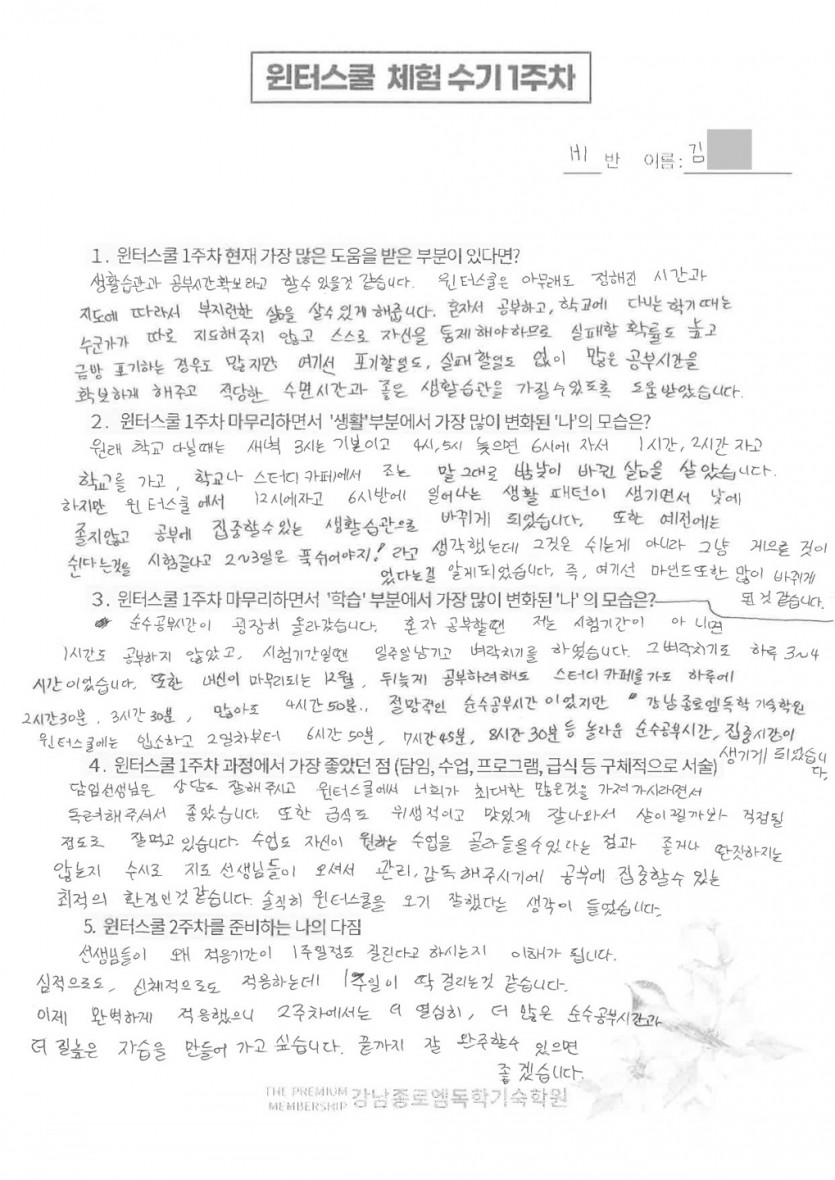 윈터스쿨 체험 수기 1주차
H1 반 이름 : 김
1. 윈터스쿨 1주차 현재 가장 많은 도움을 받은 부분이 있다면?
생활습관과 공부시간확보라고 할수있을것 같습니다. 윈터스쿨은 아무래도 정해진 시간과
지도에 따라서 부지런한 삶을 살수있게 해줍니다. 혼자서 공부하고, 학교에 다니는 학기때는
누군가가 따로 지도해주지 않고 스스로 자신을 통제해야하므로 실패할 확률도 높고
금방 포기하는 경우도 많지만 여기선 포기할일도, 실패할일도 없이 많은 공부시간을
확보하게 해주고 적당한 수면시간과 좋은 생활습관을 가질수있도록 도움받았습니다.
2. 윈터스쿨 1주차 마무리하면서 '생활'부분에서 가장 많이 변화된 '나'의 모습은?
원래 학교 다닐때는 새벽 3시는 기본이고 4시, 5시 늦으면 6시에 자서 1시간, 2시간 자고
학교를 가고, 학교나 스터디 카페에서 조는 말 그대로 밤낮이 바뀐 삶을 살았습니다.
하지만 윈터스쿨에서 12시에자고 6시반에 일어나는 생활 패턴이 생기면서 낮에
졸지않고 공부에 집중할수있는 생활습관으로 바뀌게 되었습니다. 또한 예전에는
쉰다는것을 시험끝나고 2~3일은 푹쉬어야지! 라고 생각했는데 그것은 쉬는게 아니라 그냥 게으른 것이
었다는걸 알게되었습니다. 즉, 여기선 마인드또한 많이 바뀌게
된 것 같습니다.
3. 윈터스쿨 1주차 마무리하면서 '학습' 부분에서 가장 많이 변화된 '나' 의 모습은?
순수공부시간이 굉장히 올라갔습니다. 혼자 공부할땐 저는 시험기간이 아니면
1시간도 공부하지 않았고, 시험기간일땐 일주일남기고 벼락치기를 하였습니다. 그벼락치기도 하루 3~4
시간이었습니다. 또한 내신이 마무리되는 12월, 뒤늦게 공부하려해도 스터디카페를가도 하루에
2시간30분, 3시간30분, 많아도 4시간 50분.. 절망적인 순수공부시간이었지만 강남종로엠독학기숙학원
윈터스쿨에는 입소하고 2일차부터 6시간 50분, 7시간 45분, 8시간 30분 등 놀라운 순수공부시간, 집중시간이
생기게 되었습니
다.
4. 윈터스쿨 1주차 과정에서 가장 좋았던 점 (담임, 수업, 프로그램, 급식 등 구체적으로 서술)
담임선생님은 상담도 잘해주시고 윈터스쿨에서 너희가 최대한 많은것을 가져가시라면서
독려해주셔서 좋았습니다. 또한 급식도 위생적이고 맛있게 잘나와서 살이찔까봐 걱정될
정도로 잘먹고있습니다. 수업도 자신이 원하는 수업을 골라들을수있다는 점과 졸거나 딴짓하지는
않는지 수시로 지도 선생님들이 오셔서 관리, 감독해주시기에 공부에 집중할수 있는
최적의 환경인것같습니다. 솔직히 윈터스쿨을 오기 잘했다는 생각이 들었습니다.
5. 윈터스쿨 2주차를 준비하는 나의 다짐
선생님들이 왜 적응기간이 1주일정도 걸린다고 하시는지 이해가 됩니다.
심적으로도, 신체적으로도 적응하는데 1주일이 딱 걸리는것 같습니다.
이제 완벽하게 적응했으니 2주차에서는 더 열심히, 더 많은 순수공부시간과
더 질높은 자습을 만들어 가고 싶습니다. 끝까지 잘 완주할수 있으면
좋겠습니다.
THE PREMIUM MEMBERSHIP 강남종로엠독학기숙학원